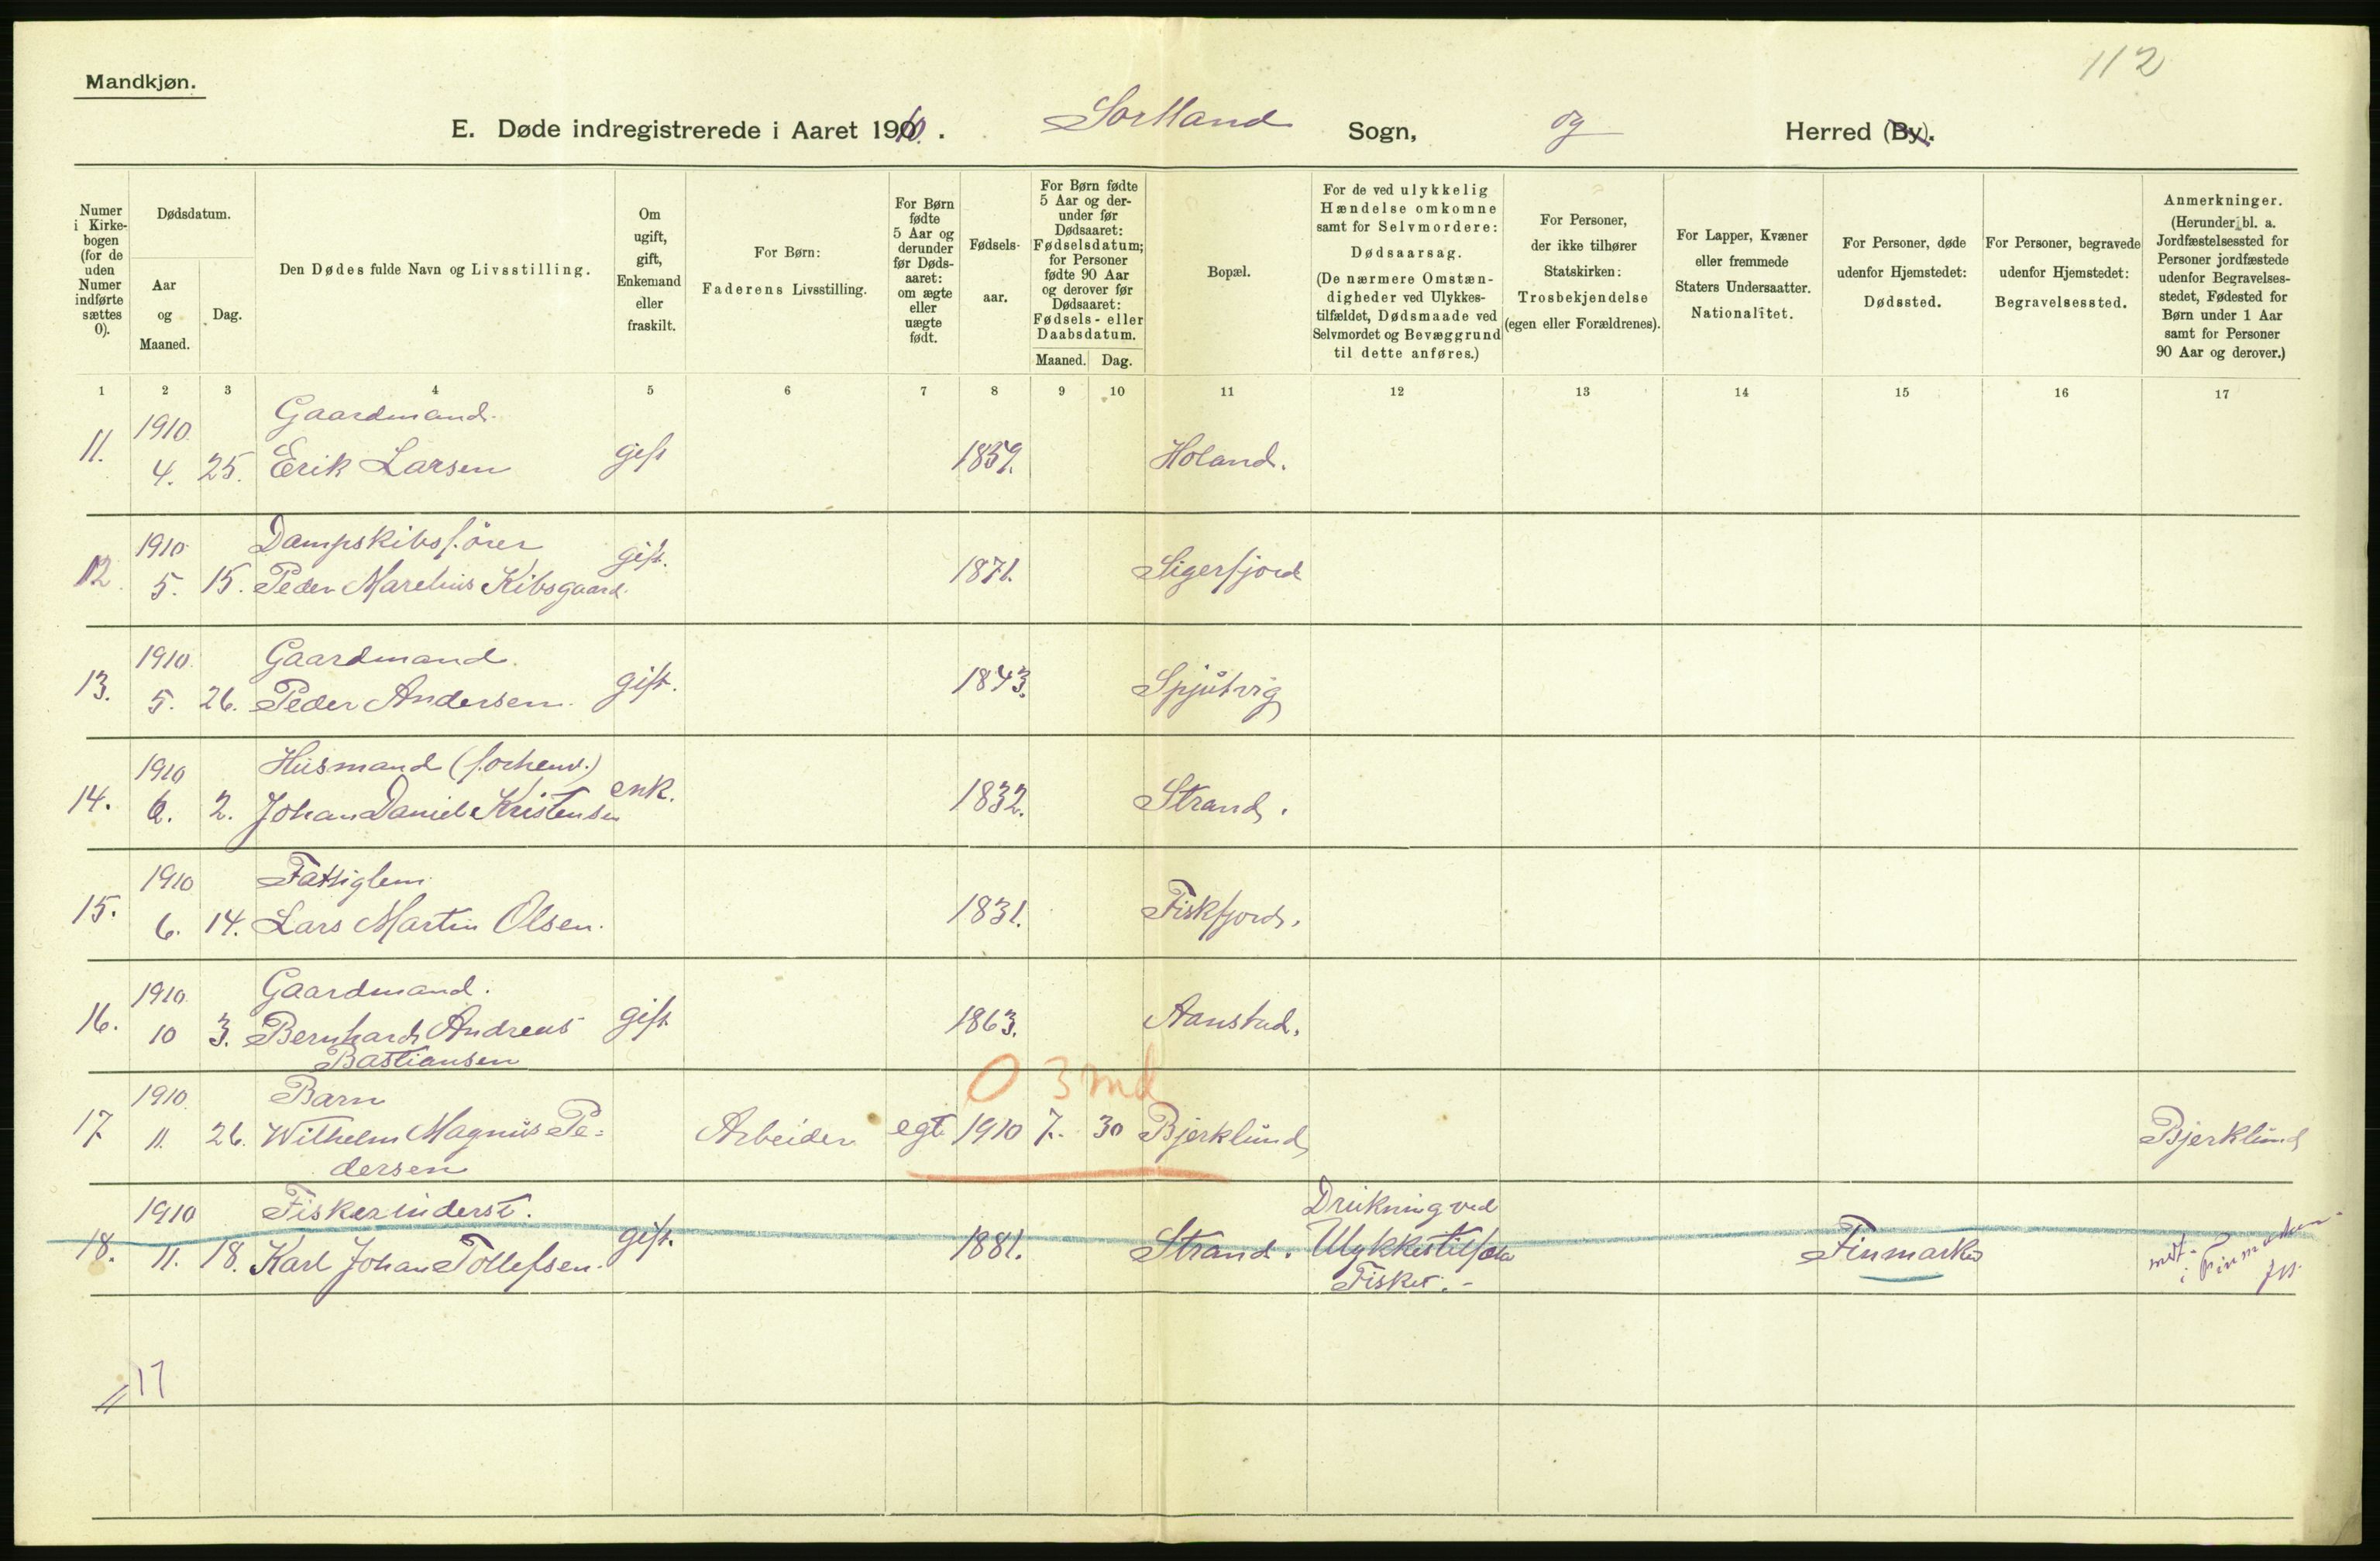 112
Mandkjøn.
E. Døde indregistrerede i Aaret 1910. Sortland Sogn, og Herred (By).
Numer i Kirkebogen (for de uden Numer indførte sættes 0).
Dødsdatum.
Aar og Maaned.
Dag.
Den Dødes fulde Navn og Livsstilling.
Om ugift, gift, Enkemand eller fraskilt.
For Børn: Faderens Livsstilling.
For Børn fødte 5 Aar og derunder før Dødsaaret: om ægte eller uægte født.
Fødselsaar.
For Børn fødte 5 Aar og derunder før Dødsaaret: Fødselsdatum; for Personer fødte 90 Aar og derover før Dødsaaret: Fødsels- eller Daabsdatum.
Maaned. Dag.
Bopæl.
For de ved ulykkelig Hændelse omkomne samt for Selvmordere: Dødsaarsag. (De nærmere Omstændigheder ved Ulykkestilfældet, Dødsmaade ved Selvmordet og Bevæggrund til dette anføres.)
For Personer, der ikke tilhører Statskirken: Trosbekjendelse (egen eller Forældrenes).
For Lapper, Kvæner eller fremmede Staters Undersaatter. Nationalitet.
For Personer, døde udenfor Hjemstedet: Dødssted.
For Personer, begravede udenfor Hjemstedet: Begravelsessted.
Anmerkninger. (Herunder bl. a. Jordfæstelsessted for Personer jordfæstede udenfor Begravelsesstedet, Fødested for Børn under 1 Aar samt for Personer 90 Aar og derover.)
1 2 3 4 5 6 7 8 9 10 11 12 13 14 15 16 17
1910. Gaardmand.
11. 4. 25. Erik Larsen gift 1859. Holand.
1910 Dampskibsfører
12. 5. 15. Peder Marelius Kibsgaard. gift. 1871. Sigerfjord
1910. Gaardmand.
13. 5. 26. Peder Andersen. gift. 1843. Spjutvig
1910 Husmand (forhenv.)
14. 6. 2. Johan Daniel Kristensen enk. 1832. Strand.
1910 Fattiglem
15. 6. 14. Lars Martin Olsen. 1831. Fiskfjord.
1910 Gaardmand.
16. 10 3. Bernhard Andreas gift 1863. Aanstad.
Bastiansen
0 3 md
1910 Barn
17. 11. 26. Wilhelm Magnus Pe= Arbeider egt. 1910 7. 30 Bjerklund Bjerklund
dersen
1910 Fisker inderst. Drukning ved
18. 11. 18. Karl Johan Tollefsen. gift. 1881. Strand. Ulykkestilfælde Finmarken
Fisker. -
17